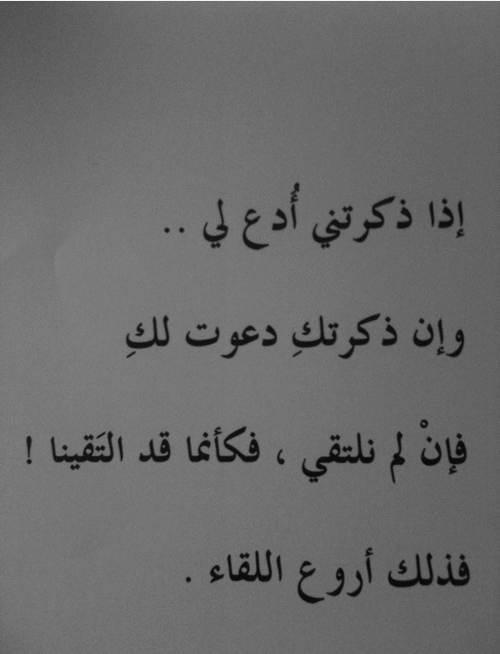 إذا ذكرتني أُدع لي ..
وإن ذكرتكِ دعوت لكِ
فإنْ لم نلتقي ، فكأنما قد التَقينا !
فذلك أروع اللقاء .